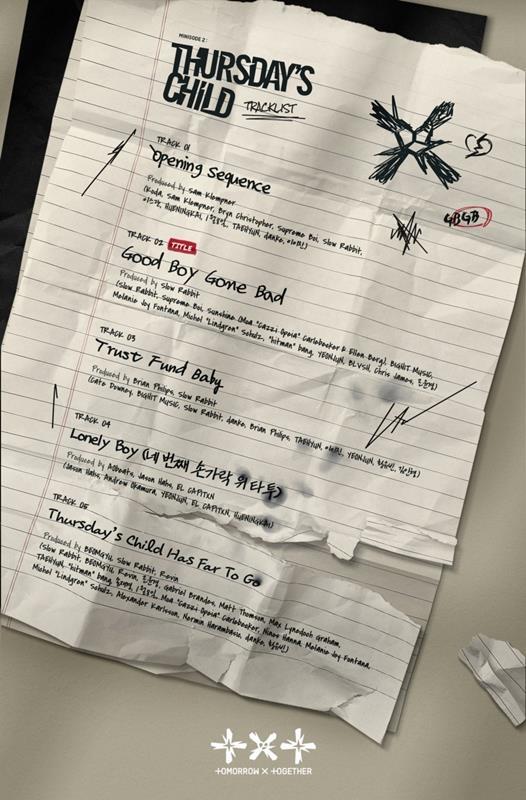 MINISODE 2 :
THURSDAY'S
CHILD TRACKLIST
GBGB
TRACK 01
Opening Sequence
Produced by Sam Klempner
(Koda, Sam Klempner, Bryn Christopher, Supreme Boi, Slow Rabbit,
HUENINGKAI, TAEHYUN, danke,
TRACK 02 TITLE
Good Boy Gone Bad
Produced by Slow Rabbit
(Slow Rabbit, Supreme Boi, Sunshine (Moa "Cazzi Opeia" Carlebecker & Ellen Berg), BIGHIT MUSIC,
Melanie Joy Fontana, Michel "Lindgren" Schulz, "hitman" bang, YEONJUN, BLVSH, Chris James,
TRACK 03
Trust Fund Baby
Produced by Brian Philips, Slow Rabbit
(Cate Downey, BIGHIT MUSIC, Slow Rabbit, danke, Brian Philips, TAEHYUN, YEONJUN,
TRACK 04
Lonely Boy (네 번째 손가락 위 타투)
Produced by AObeats, Jason Hahs, EL CAPITXN
(Jason Hahs, Andrew Okamura, YEONJUN, EL CAPITXN, HUENINGKAI)
TRACK 05
Thursday's Child Has Far To Go
Produced by BEOMGYU, Slow Rabbit, Revin
(Slow Rabbit, BEOMGYU, Revin, Gabriel Brandes, Matt Thomson, Max Lynedoch Graham,
TAEHYUN, "hitman" bang, Moa "Cazzi Opeia" Carlebecker, Ninos Hanna, Melanie Joy Fontana,
Michel "Lindgren" Schulz, Alexander Karlsson, Nermin Harambasic, danke,
TOMORROW X TOGETHER